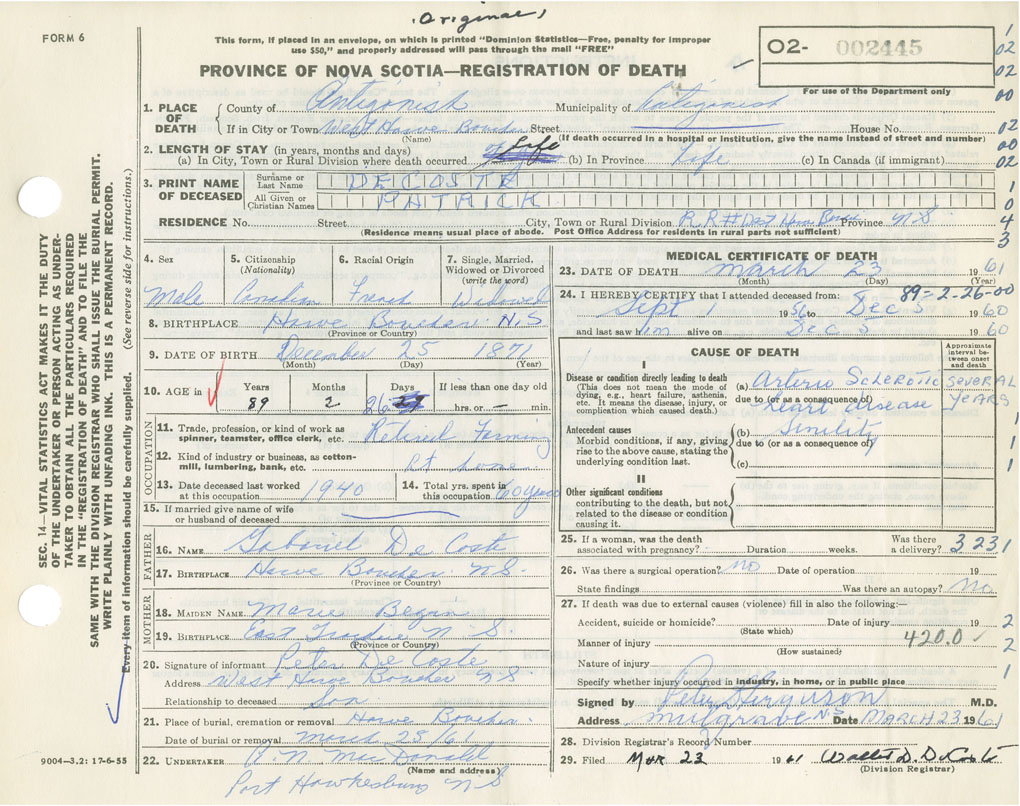 (Original)
FORM 6
This form, if placed in an envelope, on which is printed "Dominion Statistics—Free, penalty for improper
use $50," and properly addressed will pass through the mail "FREE"
O2- 002445
For use of the Department only
PROVINCE OF NOVA SCOTIA—REGISTRATION OF DEATH
1. PLACE OF DEATH
County of Antigonish Municipality of Antigonish
If in City or Town West Havre Boucher Street House No.
(Name) (If death occurred in a hospital or institution, give the name instead of street and number)
2. LENGTH OF STAY (in years, months and days)
(a) In City, Town or Rural Division where death occurred Life (b) In Province Life (c) In Canada (if immigrant)
3. PRINT NAME OF DECEASED
Surname or Last Name DECOSTE
All Given or Christian Names PATRICK
RESIDENCE No. Street City, Town or Rural Division R.R.# Province N.S.
(Residence means usual place of abode. Post Office Address for residents in rural parts not sufficient)
4. Sex
Male
5. Citizenship (Nationality)
Canadian
6. Racial Origin
French
7. Single, Married, Widowed or Divorced (write the word)
Widowed
8. BIRTHPLACE Havre Boucher N.S
(Province or Country)
9. DATE OF BIRTH December 25 1871
(Month) (Day) (Year)
10. AGE in Years Months Days If less than one day old
89 2 26 hrs. or min.
OCCUPATION
11. Trade, profession, or kind of work as spinner, teamster, office clerk, etc. Retired Farming
12. Kind of industry or business, as cotton-mill, lumbering, bank, etc. At home
13. Date deceased last worked at this occupation 1940
14. Total yrs. spent in this occupation 60 years
15. If married give name of wife or husband of deceased
FATHER
16. NAME Gabriel De Coste
17. BIRTHPLACE Havre Boucher N.S.
(Province or Country)
MOTHER
18. MAIDEN NAME Marie Begin
19. BIRTHPLACE East Tracadie N.S.
(Province or Country)
20. Signature of informant Peter De Coste
Address West Havre Boucher N.S.
Relationship to deceased Son
21. Place of burial, cremation or removal Havre Boucher
Date of burial or removal March 25/61
22. UNDERTAKER MacDonald
(Name and address)
Port Hawkesbury N.S
MEDICAL CERTIFICATE OF DEATH
23. DATE OF DEATH March 23 1961
(Month) (Day) (Year)
89-2-26-00
24. I HEREBY CERTIFY that I attended deceased from:
Sept 1 1956 to Dec 5 1960
and last saw him alive on Dec 5 1960
CAUSE OF DEATH
Approximate interval between onset and death
I
Disease or condition directly leading to death
(This does not mean the mode of dying, e.g., heart failure, asthenia, etc. It means the disease, injury, or complication which caused death.)
(a) Arterio Sclerotic SEVERAL YEARS
due to (or as a consequence of) heart disease
Antecedent causes
Morbid conditions, if any, giving rise to the above cause, stating the underlying condition last.
(b) Senility
due to (or as a consequence of)
(c)
II
Other significant conditions
contributing to the death, but not related to the disease or condition causing it.
25. If a woman, was the death associated with pregnancy? Duration weeks. Was there a delivery? 3231
26. Was there a surgical operation? NO Date of operation 19
State findings Was there an autopsy? No
27. If death was due to external causes (violence) fill in also the following:—
Accident, suicide or homicide? Date of injury 19
(State which)
Manner of injury 420.0
(How sustained)
Nature of injury
Specify whether injury occurred in industry, in home, or in public place
Signed by Peter Ferguson M.D.
Address Mulgrave N.S Date MARCH 23 1961
28. Division Registrar's Record Number
29. Filed Mar 23 1961
(Division Registrar)
SEC. 14—VITAL STATISTICS ACT MAKES IT THE DUTY
OF THE UNDERTAKER OR PERSON ACTING AS UNDER-
TAKER TO OBTAIN ALL THE PARTICULARS REQUIRED
IN THE "REGISTRATION OF DEATH" AND TO FILE THE
SAME WITH THE DIVISION REGISTRAR WHO SHALL ISSUE THE BURIAL PERMIT.
WRITE PLAINLY WITH UNFADING INK. THIS IS A PERMANENT RECORD.
Every item of information should be carefully supplied. (See reverse side for instructions.)
9004—3.2: 17-6-55
1
02
02
00
02
00
02
1
0
4
3
1
1
1
1
2
2
1